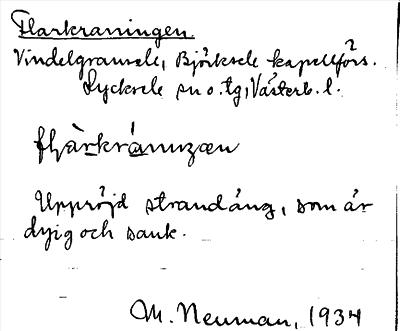 Flarkraningen
Vindelgransele, Björksele kapellförs.
Lycksele sn o. tg, Västerb. l.
Uppröjd strandäng, som är
dyig och sank.
M. Neuman, 1934